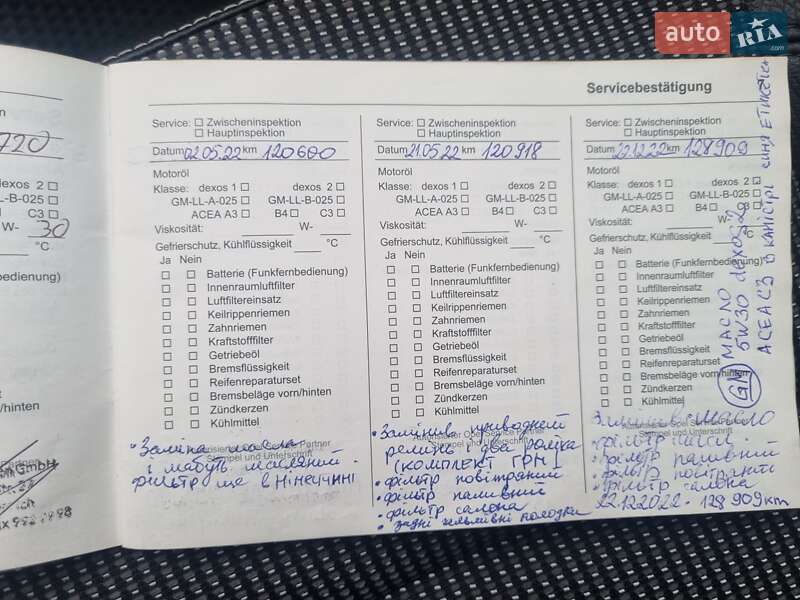 auto RIA .com
Servicebestätigung
720
dexos 2
GM-LL-B-025
C3
W- 30
°C
vorn/hinten
Service: Zwischeninspektion
Hauptinspektion
Datum 02.05.22 km 120600
Motoröl
Klasse: dexos 1 dexos 2
GM-LL-A-025 GM-LL-B-025
ACEA A3 B4 C3
Viskosität: W-
Gefrierschutz, Kühlflüssigkeit °C
Ja Nein
Batterie (Funkfernbedienung)
Innenraumluftfilter
Luftfiltereinsatz
Keilrippenriemen
Zahnriemen
Kraftstofffilter
Getriebeöl
Bremsflüssigkeit
Reifenreparaturset
Bremsbeläge vorn/hinten
Zündkerzen
Kühlmittel
Autorisierter Opel Service Partner
Stempel und Unterschrift
Заміна масла
і мабуть масляний
фільтр ще в Німеччині
Service: Zwischeninspektion
Hauptinspektion
Datum 21.05.22 km 120918
Motoröl
Klasse: dexos 1 dexos 2
GM-LL-A-025 GM-LL-B-025
ACEA A3 B4 C3
Viskosität: W-
Gefrierschutz, Kühlflüssigkeit °C
Ja Nein
Batterie (Funkfernbedienung)
Innenraumluftfilter
Luftfiltereinsatz
Keilrippenriemen
Zahnriemen
Kraftstofffilter
Getriebeöl
Bremsflüssigkeit
Reifenreparaturset
Bremsbeläge vorn/hinten
Zündkerzen
Kühlmittel
Autorisierter Opel Service Partner
Stempel und Unterschrift
• Замінив приводний
ремінь і два роліка
(комплект ГРМ)
• фільтр повітряний
• фільтр паливний
• фільтр салона
• задні гальмівні колодки
Service: Zwischeninspektion
Hauptinspektion
Datum 22.12.22 km 128909
Motoröl
Klasse: dexos 1 dexos 2
GM-LL-A-025 GM-LL-B-025
ACEA A3 B4
Viskosität: W-
Gefrierschutz, Kühlflüssigkeit °C
Ja Nein
Batterie (Funkfernbedienung)
Innenraumluftfilter
Luftfiltereinsatz
Keilrippenriemen
Zahnriemen
Kraftstofffilter
Getriebeöl
Bremsflüssigkeit
Reifenreparaturset
Bremsbeläge vorn/hinten
Zündkerzen
Kühlmittel
Autorisierter Opel Service Partner
Stempel und Unterschrift
масло
• фільтр
• фільтр паливний
• фільтр повітряний
• фільтр салона
22.12.2022 - 128909km
GM МАСЛО
5W30 dexos 2
ACEA C3 в каністрі синя етикетка